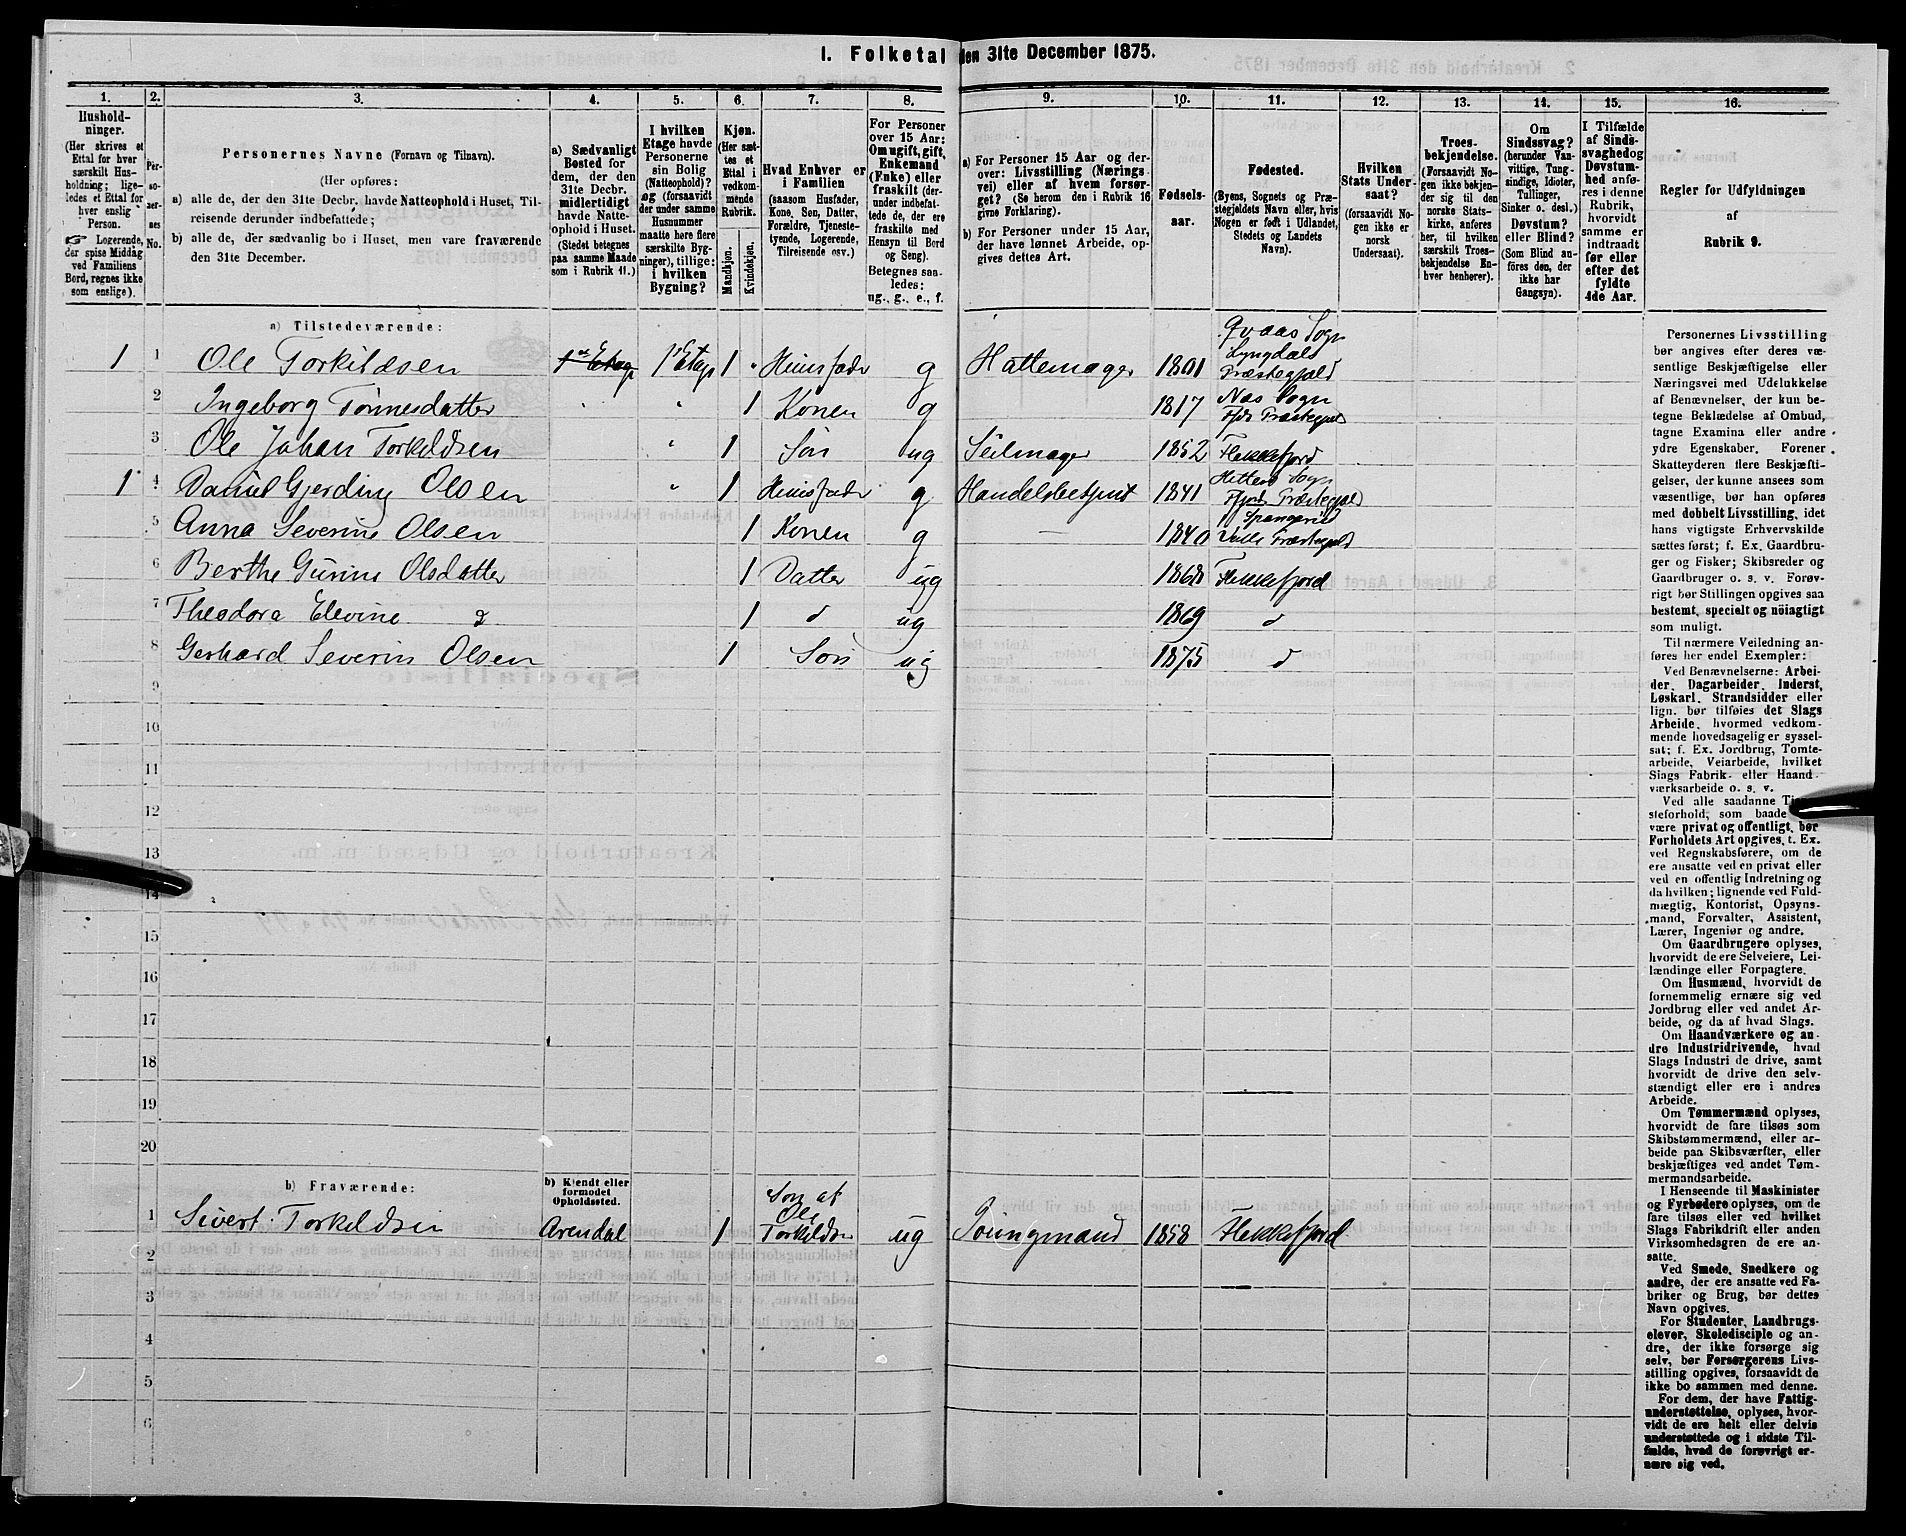 I. Folketal den 31te December 1875.
1. 2. 3. 4. 5. 6. 7. 8. 9. 10. 11. 12. 13. 14. 15. 16.
Hushold-
ninger.
(Her skrives et
Ettal for hver
særskilt Hus-
holdning; lige-
ledes et Ettal for
hver enslig
Person.
☞ Logerende,
der spise Middag
ved Familiens
Bord, regnes ikke
som enslige).
Per-
so-
ner-
nes
No.
Personernes Navne (Fornavn og Tilnavn).
(Her opføres:
a) alle de, der den 31te Decbr. havde Natteophold i Huset, Til-
reisende derunder indbefattede;
b) alle de, der sædvanlig bo i Huset, men vare fraværende
den 31te December.
a) Sædvanligt
Bosted for
dem, der den
31te Decbr.
midlertidigt
havde Natte-
ophold i Huset.
(Stedet betegnes
paa samme Maade
som i Rubrik 11.)
I hvilken
Etage havde
Personerne
sin Bolig
(Natteophold)?
og (forsaavidt
der under samme
Husnummer
maatte høre flere
særskilte Byg-
ninger), tillige:
i hvilken
Bygning?
Kjøn.
(Her sæt-
tes et
Ettal i
vedkom-
mende
Rubrik.
Mandkjøn.
Kvindekjøn.
Hvad Enhver er
i Familien
(saasom Husfader,
Kone, Søn, Datter,
Forældre, Tjeneste-
tyende, Logerende,
Tilreisende osv.)
For Personer
over 15 Aar:
Om ugift, gift,
Enkemand
(Enke) eller
fraskilt (der-
under indbefat-
tede de, der ere
fraskilte med
Hensyn til Bord
og Seng).
Betegnes saa-
ledes:
ug., g., e., f.
a) For Personer 15 Aar og der-
over: Livsstilling (Nærings-
vei) eller af hvem forsør-
get? (Se herom den i Rubrik 16
givne Forklaring).
b) For Personer under 15 Aar,
der have lønnet Arbeide, op-
gives dettes Art.
Fødsels-
aar.
Fødested.
(Byens, Sognets og Præ-
stegjeldets Navn eller, hvis
Nogen er født i Udlandet,
Stedets og Landets
Navn).
Hvilken
Stats Under-
saat?
(forsaavidt No-
gen ikke er
norsk
Undersaat).
Troes-
bekjendelse.
(Forsaavidt No-
gen ikke bekjen-
der sig til den
norske Stats-
kirke, anføres
her, til hvilken
særskilt Troes-
bekjendelse En-
hver henhører).
Om
Sindssvag?
(herunder Van-
vittige, Tung-
sindige, Idioter,
Tullinger,
Sinker o. desl.)
Døvstum?
eller Blind?
(Som Blind an-
føres den, der
ikke har
Gangsyn).
I Tilfælde
af Sinds-
svaghed og
Døvstum-
hed anfø-
res i denne
Rubrik,
hvorvidt
samme er
indtraadt
før eller
efter det
fyldte
4de Aar.
Regler for Udfyldningen
af
Rubrik 9.
a) Tilstedeværende:
1 1 Ole Torkildsen 1ste Etage 1 Etage 1 Huusfader g Hattemager 1801 Qvaas Sogn Lyngdals Præstegjeld
2 Ingeborg Tönnesdatter 1 Konen g 1817 Næs Sogn Præstegjeld
3 Ole Johan Torkeldsen 1 Sön ug Seilmager 1852 Flekkefjord
1 4 Daniel Gjerding Olsen 1 Huusfader g Handelsbetjent 1841 Hitterö Sogn Præstegjeld
5 Anna Severine Olsen 1 Konen g 1840 Spangereid Valle Præstegjeld
6 Berthe Gurine Olsdatter 1 Datter ug 1868 Flekkefjord
7 Theodora Elevine d 1 d ug 1869 d
8 Gerhard Severin Olsen 1 Sön ug 1875 d
9
10
11
12
13
14
15
16
17
18
19
20
b) Fraværende:
b) Kjendt eller
formodet
Opholdssted.
1 Sivert Torkildsen Arendal 1 Sön af Ole Torkildsen ug Young mand 1858 Flekkefjord
2
3
4
5
6
Personernes Livsstilling
bør angives efter deres væ-
sentlige Beskjæftigelse eller
Næringsvei med Udelukkelse
af Benævnelser, der kun be-
tegne Beklædelse af Ombud,
tagne Examina eller andre
ydre Egenskaber. Forener
Skatteyderen flere Beskjæfti-
gelser, der kunne ansees som
væsentlige, bør han opføres
med dobbelt Livsstilling, idet
hans vigtigste Erhvervskilde
sættes først; f. Ex. Gaardbru-
ger og Fisker; Skibsreder og
Gaardbruger o. s. v. Forøv-
rigt bør Stillingen opgives saa
bestemt, specielt og nøiagtigt
som muligt.
Til nærmere Veiledning an-
føres her endel Exempler:
Ved Benævnelserne: Arbei-
der, Dagarbeider, Inderst,
Løskarl, Strandsidder eller
lign. bør tilføies det Slags
Arbeide, hvormed vedkom-
mende hovedsagelig er syssel-
sat; f. Ex. Jordbrug, Tomte-
arbeide, Veiarbeide, hvilket
Slags Fabrik- eller Haand-
værksarbeide o. s. v.
Ved alle saadanne
steforhold; som baade
være privat og offentligt, bør
Forholdets Art opgives, t. Ex.
ved Regnskabsførere, om de
ere ansatte ved en privat eller
ved en offentlig Indretning og
da hvilken; lignende ved Fuld-
mægtig, Kontorist, Opsyns-
mand, Forvalter, Assistent,
Lærer, Ingeniør og andre.
Om Gaardbrugere oplyses,
hvorvidt de ere Selveiere, Lei-
lændinge eller Forpagtere.
Om Husmænd, hvorvidt de
fornemmelig ernære sig ved
Jordbrug eller ved andet Ar-
beide, og da af hvad Slags.
Om Haandværkere og an-
dre Industridrivende, hvad
Slags Industri de drive, samt
hvorvidt de drive den selv-
stændigt eller ere i andres
Arbeide.
Om Tømmermænd oplyses,
hvorvidt de fare tilsøs som
Skibstømmermænd, eller ar-
beide paa Skibsværfter, eller
beskjæftiges ved andet Tøm-
mermandsarbeide.
I Henseende til Maskinister
og Fyrbødere oplyses, om de
fare tilsøs eller ved hvilket
Slags Fabrikdrift eller anden
Virksomhedsgren de ere an-
satte.
Ved Smede, Snedkere og
andre, der ere ansatte ved Fa-
briker og Brug, bør dettes
Navn opgives.
For Studenter, Landbrugs-
elever, Skoledisciple og an-
dre, der ikke forsørge sig
selv, bør Forsørgerens Livs-
stilling opgives, forsaavidt de
ikke bo sammen med denne.
For dem, der have Fattig-
understøttelse, oplyses, hvor-
vidt de ere helt eller delvis
understøttede og i sidste Til-
fælde, hvad de forøvrigt er-
nære sig ved.